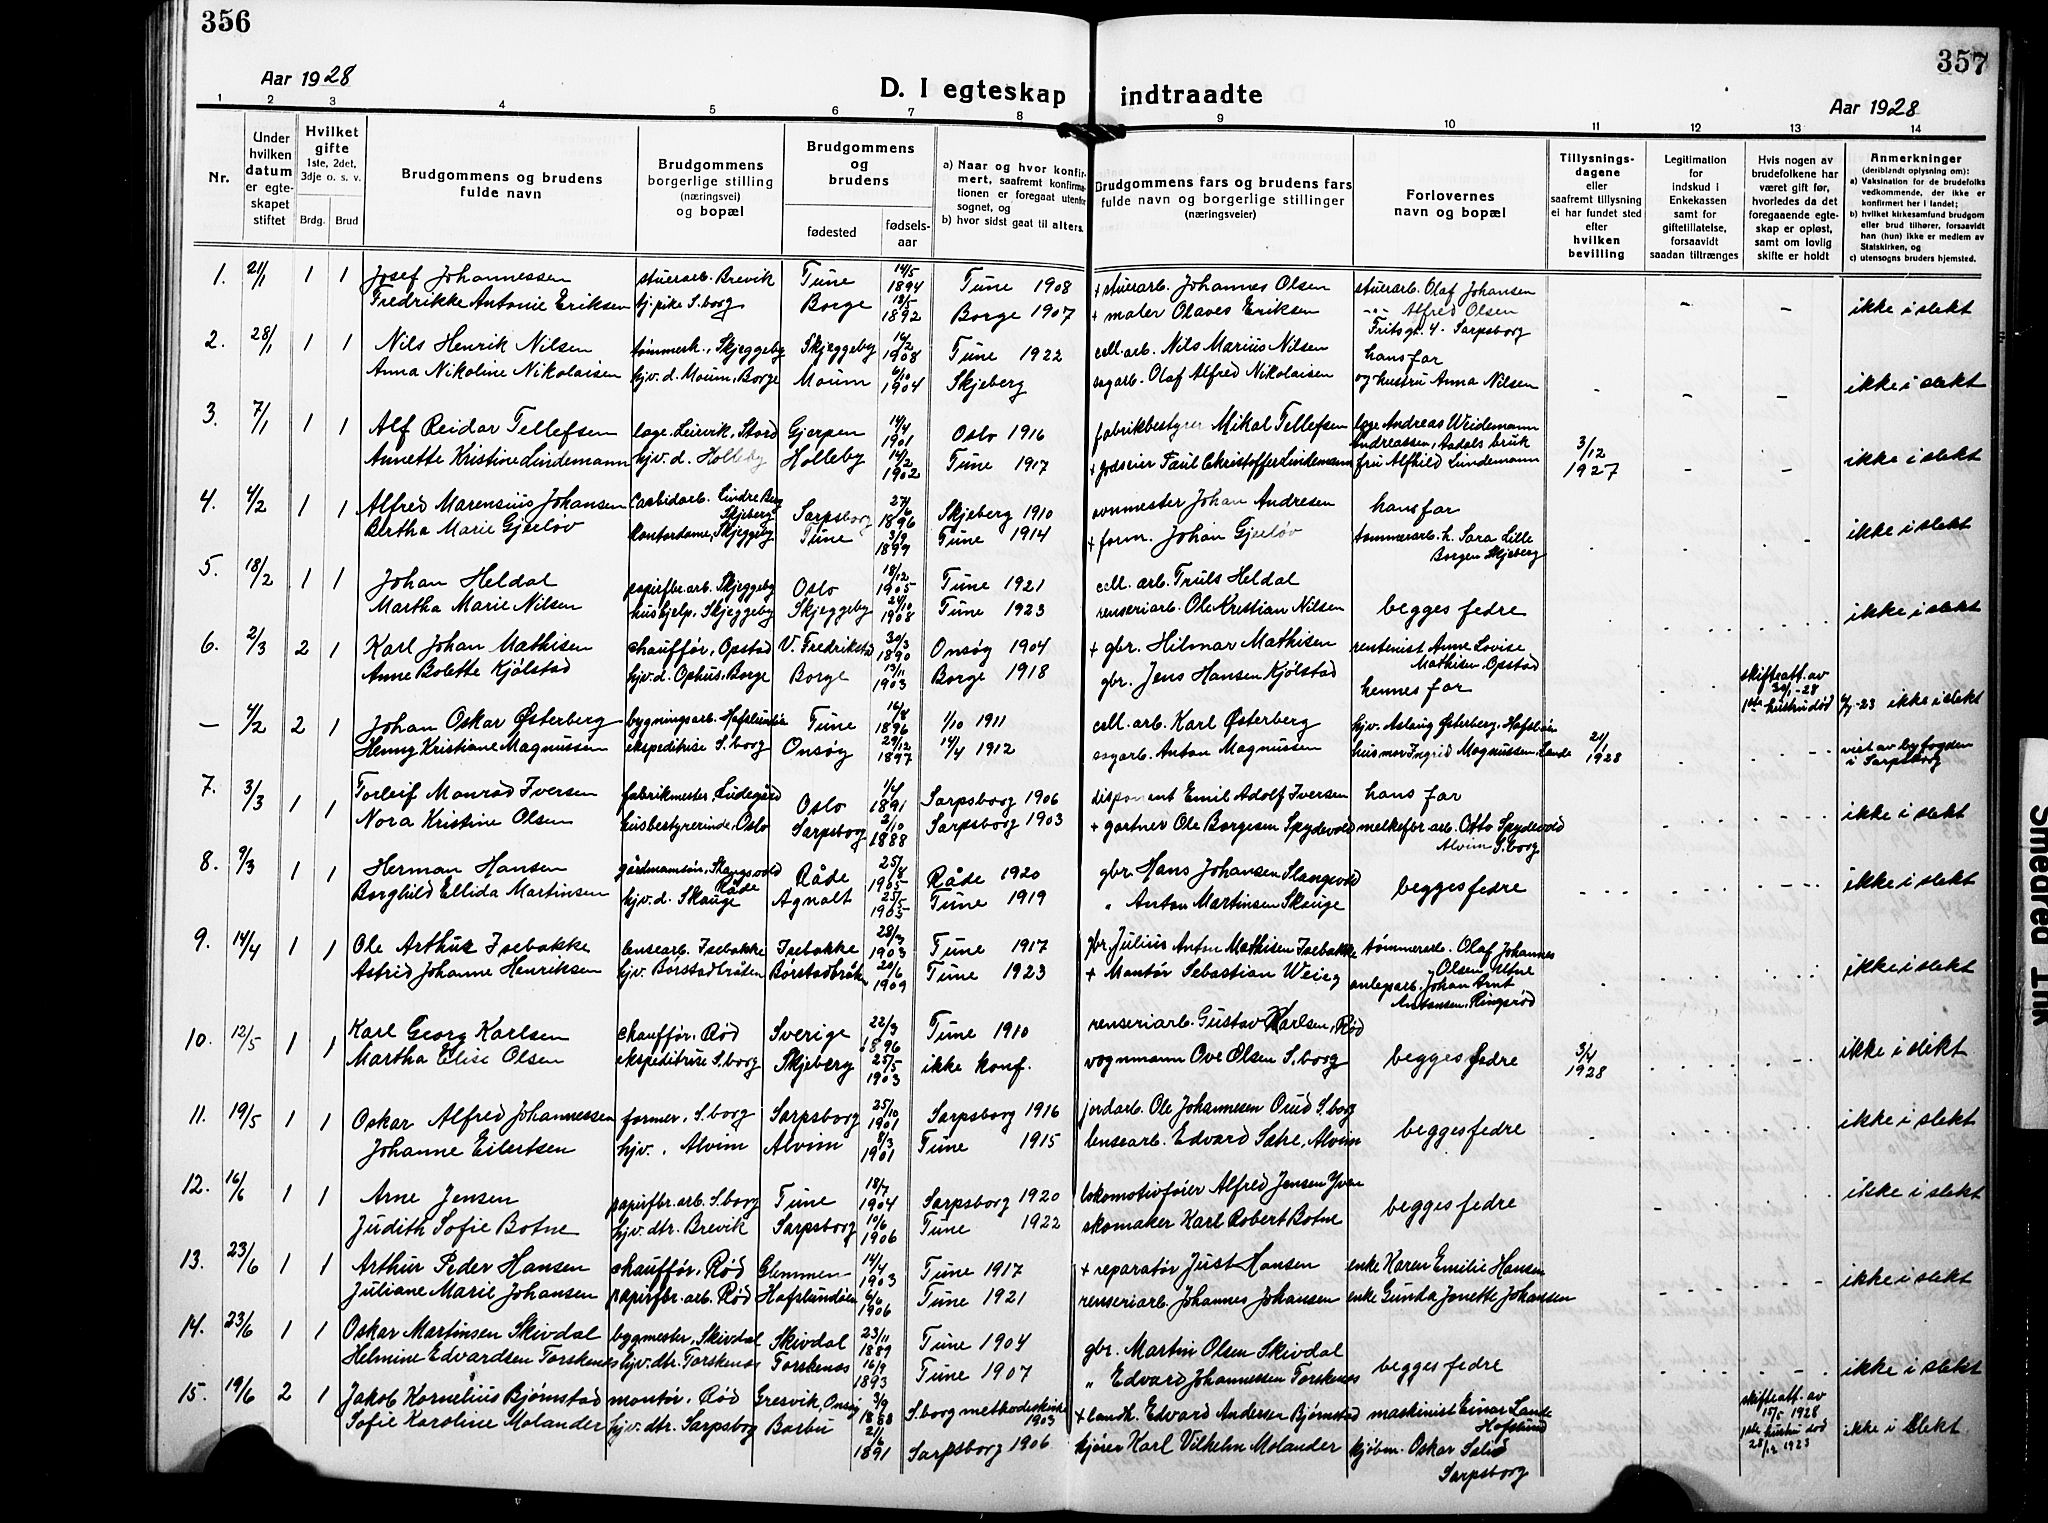 356
357
Aar 1928
D. I egteskap indtraadte
Aar 1928
1 2 3 4 5 6 7 8 9 10 11 12 13 14
Nr.
Under hvilken datum er egte-skapet stiftet
Hvilket gifte 1ste, 2det, 3dje o. s. v.
Brdg. Brud
Brudgommens og brudens fulde navn
Brudgommens borgerlige stilling (næringsvei) og bopæl
Brudgommens og brudens
fødested
fødsels-aar
a) Naar og hvor konfir-mert, saafremt konfirma-tionen er foregaat utenfor sognet, og b) hvor sidst gaat til alters.
Brudgommens fars og brudens fars fulde navn og borgerlige stillinger (næringsveier)
Forlovernes navn og bopæl
Tillysnings-dagene eller saafremt tillysning ei har fundet sted efter hvilken bevilling
Legitimation for indskud i Enkekassen samt for giftetillatelse, forsaavidt saadan tiltrænges
Hvis nogen av brudefolkene har været gift før, hvorledes da det foregaaende egte-skap er opløst, samt om lovlig skifte er holdt
Anmerkninger (deriblandt oplysning om): a) Vaksination for de brudefolks vedkommende, der ikke er konfirmert her i landet; b) hvilket kirkesamfund brudgom eller brud tilhører, forsaavidt han (hun) ikke er medlem av Statskirken, og c) utensogns bruders hjemsted.
1. 21/1 1 1 Josef Johannessen stuerarb. Brevik Tune 14/5 1894 Tune 1908 + stuerarb. Johannes Olsen stuerarb. Olaf Johansen
Fredrikke Antonie Eriksen hj. pike S.borg Borge 13/5 1892 Borge 1907 + maler Olaves Eriksen -"- Alfred Olsen Fritsgt. 4. Sarpsborg - - ikke i slekt
2. 28/1 1 1 Nils Henrik Nilsen tømmerh., Skjeggeby Skjeggeby 16/2 1908 Tune 1922 cell. arb. Nils Marius Nilsen hans far
Anna Nikoline Nikolaisen hjv. d. Moum, Borge Moum 6/10 1904 Skjeberg sagarb. Olaf Alfred Nikolaisen og hustru Anna Nilsen - - - ikke i slekt
3. 7/1 1 1 Alf Reidar Tellefsen læge. Leirvik, Stord Gjerpen 14/4 1901 Oslo 1916 fabrikbestyrer Mikal Tellefsen læge Andreas Weidemann Andreassen, Aadals bruk
Annette Kristine Lindemann hjv. d. Holleby Holleby 14/2 1902 Tune 1917 + godseier Paul Christoffer Lindemann fru Alfhild Lindemann 3/12 1927 - - ikke i slekt
4. 4/2 1 1 Alfred Marensius Johansen Carbidarb. Lindre Berg Skjeberg Sarpsborg 27/6 1896 Skjeberg 1910 ovnmester Johan Andresen hans far
Bertha Marie Gjerløv Kontordame, Skjeggeby Tune 3/9 1899 Tune 1914 + form. Johan Gjerløv tømmerarb. h. Sara Lille Borgen Skjeberg ikke i slekt
5. 18/2 1 1 Johan Heldal papirfbr. arb. Skjeggeby Oslo 18/12 1905 Tune 1921 cell. arb. Truls Heldal
Martha Marie Nilsen hushjelp, Skjeggeby Skjeggeby 24/10 1908 Tune 1923 renseriarb. Ole Kristian Nilsen begges fedre ikke i slekt
6. 2/3 2 1 Karl Johan Mathisen chauffør, Opstad V. Fredrikstad 30/3 1890 Onsøy 1904 + gbr. Hilmar Mathisen rentenist Anne Lovise Mathisen Opstad
Anne Bolette Kjølstad hjv. d. Ophus, Borge Borge 13/11 1903 Borge 1918 gbr. Jens Hansen Kjølstad hennes far skifteatt. av 30/1-28 1ste hustru død 4/7-23 ikke i slekt
— 4/2 2 1 Johan Oskar Østerberg bygningsarb. Hafslundsø Tune 16/8 1896 1/10 1911 cell. arb. Karl Østerberg hjv. Aslaug Østerberg, Hafslunsø
Henny Kristiane Magnussen ekspeditrise S.borg Onsøy 29/12 1897 14/4 1912 sagarb. Anton Magnussen husmor Ingrid Magnussen, Lande 21/1 1928 viet av byfogden i Sarpsborg
7. 3/3 1 1 Torleif Monrad Iversen fabrikmester, Ludegård Oslo 1/4 1891 Sarpsborg 1906 disponent Emil Adolf Iversen hans far
Nora Kristine Olsen husbestyrerinde, Oslo Sarpsborg 2/10 1888 Sarpsborg 1903 + gartner Ole Borgesen Spydevold melkefbr. arb. Otto Spydevold Alvim S.borg ikke i slekt
8. 9/3 1 1 Herman Hansen gårdmannsøn, Slangsvold Råde Råde 25/8 1905 Råde 1920 gbr. Hans Johansen Slangsvold
Borghild Ellida Martinsen hjv. d. Skauge Agnalt 25/5 1903 Tune 1919 " Anton Martinsen Skauge begges fedre ikke i slekt
9. 14/4 1 1 Ole Arthur Isebakke lensearb. Isebakke Isebakke 28/3 1903 Tune 1917 gbr. Julius Anton Mathisen Isebakke tømmerarb. Olaf Johannes Olsen Utne
Astrid Johanne Henriksen hjv. Børstadbråten Børstadbråten 20/6 1909 Tune 1923 + Montør Sebastian Weieg anlegsarb. Johan Arnt Antonsen, Ringsrød ikke i slekt
10. 12/5 1 1 Karl Georg Karlsen chauffør, Rød Sverige 22/3 1896 Tune 1910 renseriarb. Gustav Karlsen, Rød
Martha Elise Olsen ekspeditrise S.borg Skjeberg 25/5 1903 ikke konf. vognmann Ove Olsen S.borg begges fedre 3/4 1928 ikke i slekt
11. 19/5 1 1 Oskar Alfred Johannessen former, S.borg Sarpsborg 25/10 1901 Sarpsborg 1916 jordarb. Ole Johannesen Orud S.borg
Johanne Eilertsen hjv., Alvim Alvim 8/3 1901 Tune 1915 lensearb. Edvard Sæhe, Alvim begges fedre ikke i slekt
12. 16/6 1 1 Arne Jensen papirfbr. arb. S.borg Tune 18/7 1904 Sarpsborg 1920 lokomotivføier Alfred Jensen Yven
Judith Sofie Botne hjv. dtr. Brevik Sarpsborg 10/6 1906 Tune 1922 skomaker Karl Robert Botne begges fedre ikke i slekt
13. 23/6 1 1 Arthur Peder Hansen chauffør, Rød Glemmen 14/4 1903 Tune 1917 + reparatør Just Hansen enke Karen Emilie Hansen
Juliane Marie Johansen papirfbr. arb. Rød Hafslundsøen 6/6 1906 Tune 1921 renseriarb. Johannes Johansen enke Gunda Jonette Johansen ikke i slekt
14. 23/6 1 1 Oskar Martinsen Skivdal bygmester, Skivdal Skivdal 23/11 1889 Tune 1904 gbr. Martin Olsen Skivdal
Helmine Edvardsen Torskenes hjv. dtr. Torskenes Torskenæs 16/9 1893 Tune 1907 " Edvard Johannessen Torskenes begges fedre ikke i slekt
15. 19/6 2 1 Jakob Kornelius Bjørnstad montør, Rød Gresvik, Onsøy 3/9 1888 S.borg methodistkirke 1903 + landh. Edvard Andersen Bjørnstad maskinist Einar Lande Hafslund
Sofie Karoline Molander hjv. dtr. Sarpsborg Barbu 21/6 1891 Sarpsborg 1906 kjører Karl Vilhelm Molander kjøbm. Oskar Salid Sarpsborg skifteatt. av 15/5 1928 1ste hustru død 28/12 1923 ikke i slekt
Smedrød Trik